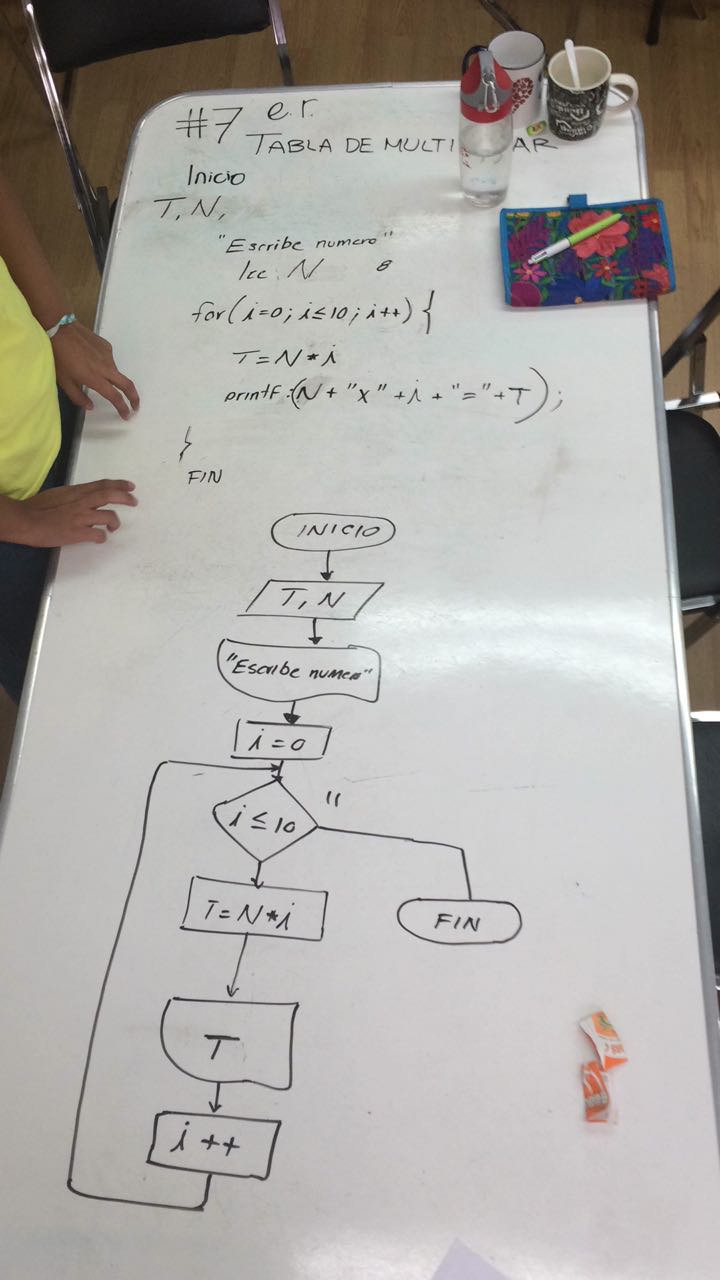 #7 e.r.
TABLA DE MULTI AR
Inicio
T, N,
"Escribe numero"
lee N 8
for(i=0; i≤10; i++) {
T=N*i
printf:(N+"x"+i+"="+T);
}
FIN
INICIO
T, N
"Escribe numero"
i=0
i≤10 "
T=N*i
FIN
T
i ++